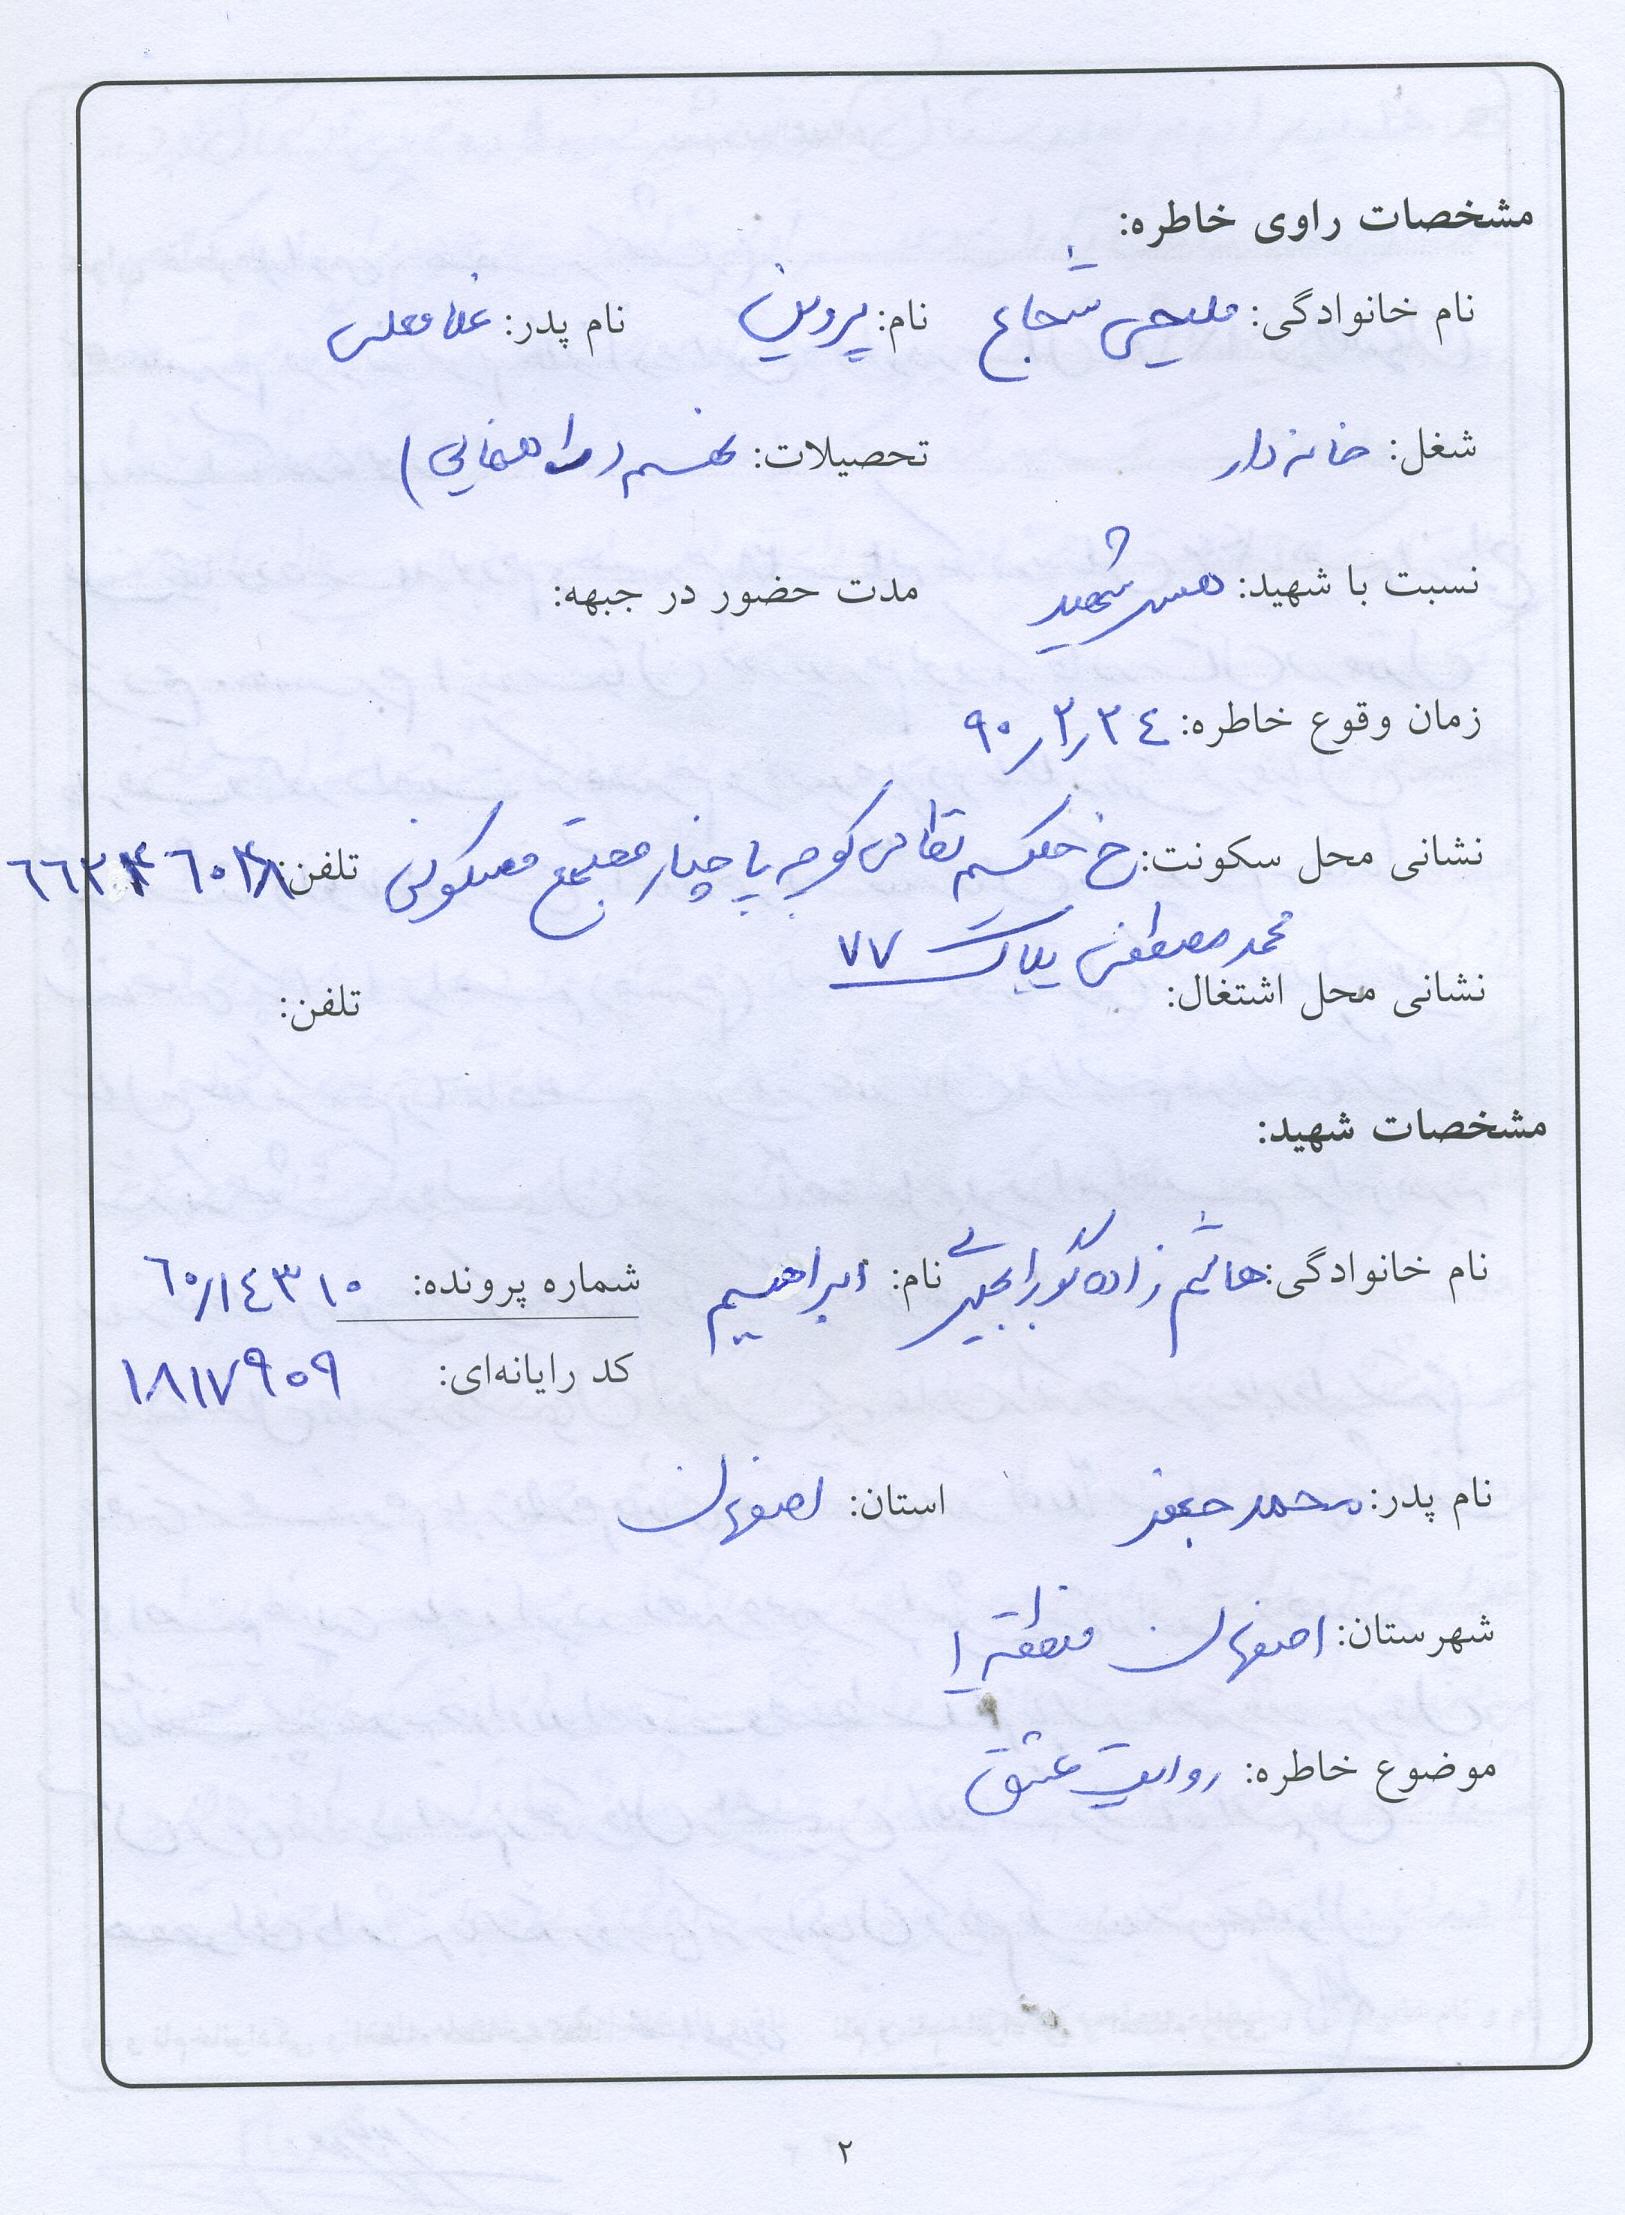 مشخصات راوی خاطره:
نام خانوادگی: ملیحی شجاع نام: پروین نام پدر: غلامعلی
شغل: خانه دار تحصیلات: نهم (راهنمایی)
نسبت با شهید: همسر شهید مدت حضور در جبهه:
زمان وقوع خاطره: ۹۰/۳/۲۴
نشانی محل سکونت: خ حکیم نظامی کوچه پاچنار مجتمع مسکونی تلفن:
محمد مصطفی پلاک ۷۷
نشانی محل اشتغال: تلفن:
مشخصات شهید:
نام خانوادگی: هاشم زاده نام: ابراهیم شماره پرونده: ۶۰/۱۴۳۱۰
کد رایانه‌ای: ۱۸۱۷۹۰۹
نام پدر: محمد جعفر استان: اصفهان
شهرستان: اصفهان منطقه ۱
موضوع خاطره: روایت عشق
۲